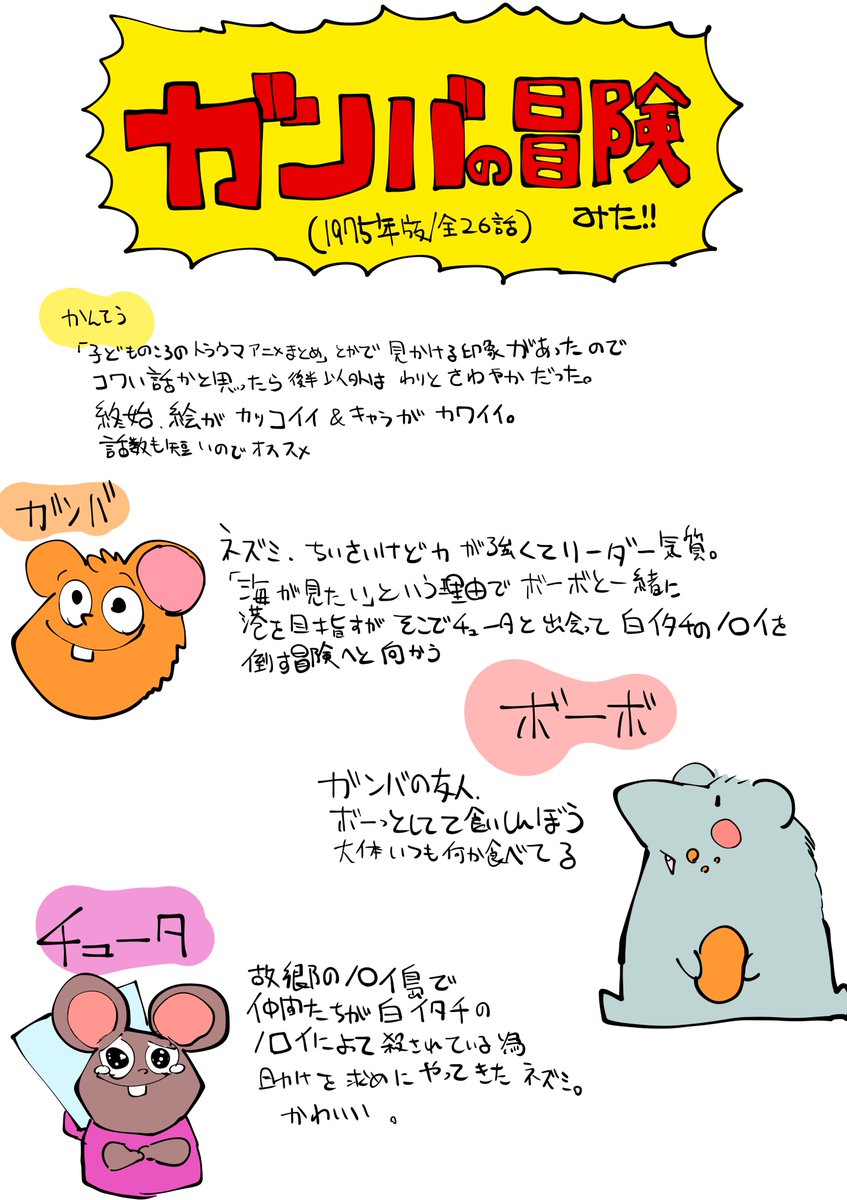 ガンバの冒険
(1975年版/全26話) みた!!
かんそう
「子どものころのトラウマアニメまとめ」とかで 見かける印象があったので
コワい話かと思ったら後半以外は わりと さわやかだった。
終始、絵が カッコイイ&キャラが カワイイ。
話数も短いのでオススメ
ガンバ
ネズミ、ちいさいけど力が強くてリーダー気質。
「海が見たい」という理由で ボーボと一緒に
港を目指すが そこでチュータと出会って 白イタチのノロイを
倒す冒険へと向かう
ボーボ
ガンバの友人。
ボーっとしてて食いしんぼう
大体いつも何か食べてる
チュータ
故郷のノロイ島で
仲間たちが白イタチの
ノロイによって殺されている為
助けを求めにやってきたネズミ。
かわいい。